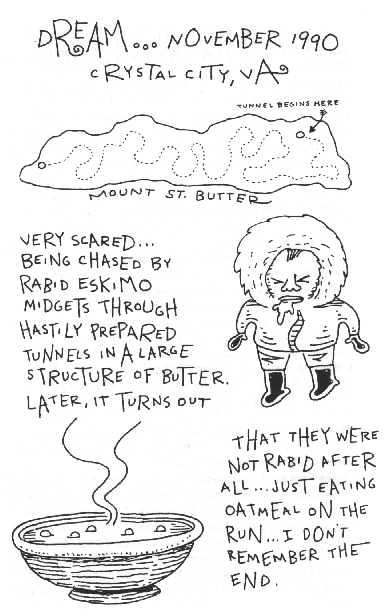 DREAM... NOVEMBER 1990
CRYSTAL CITY, VA
TUNNEL BEGINS HERE
MOUNT ST. BUTTER
VERY SCARED...
BEING CHASED BY
RABID ESKIMO
MIDGETS THROUGH
HASTILY PREPARED
TUNNELS IN A LARGE
STRUCTURE OF BUTTER.
LATER, IT TURNS OUT
THAT THEY WERE
NOT RABID AFTER
ALL... JUST EATING
OATMEAL ON THE
RUN... I DON'T
REMEMBER THE
END.